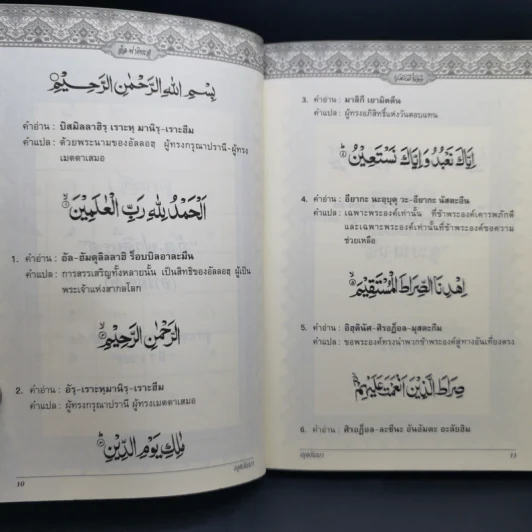 อัล-ฟาติหะฮฺ
بِسْمِ اللهِ الرَّحْمٰنِ الرَّحِيْمِ
คำอ่าน : บิสมิลลาฮิรฺ เราะหฺ มานิรฺ-เราะฮีม
คำแปล : ด้วยพระนามของอัลลอฮฺ ผู้ทรงกรุณาปรานี-ผู้ทรง
เมตตาเสมอ
اَلْحَمْدُ لِلّٰهِ رَبِّ الْعٰلَمِيْنَ
1. คำอ่าน : อัล-ฮัมดุลิลลาฮิ ร็อบบิลอาละมีน
คำแปล : การสรรเสริญทั้งหลายนั้น เป็นสิทธิของอัลลอฮฺ ผู้เป็น
พระเจ้าแห่งสากลโลก
الرَّحْمٰنِ الرَّحِيْمِ
2. คำอ่าน : อัรฺ-เราะหฺมานิรฺ-เราะฮีม
คำแปล : ผู้ทรงกรุณาปรานี ผู้ทรงเมตตาเสมอ
مٰلِكِ يَوْمِ الدِّيْنِ
10
3. คำอ่าน : มาลิกี เยามิดดีน
คำแปล : ผู้ทรงอภิสิทธิ์แห่งวันตอบแทน
اِيَّاكَ نَعْبُدُ وَاِيَّاكَ نَسْتَعِيْنُ
4. คำอ่าน : อียากะ นะอฺบุดุ วะ-อียากะ นัสตะอีน
คำแปล : เฉพาะพระองค์เท่านั้น ที่ข้าพระองค์เคารพภักดี
และเฉพาะพระองค์เท่านั้นที่ข้าพระองค์ขอความ
ช่วยเหลือ
اِهْدِنَا الصِّرَاطَ الْمُسْتَقِيْمَ
5. คำอ่าน : อิฮฺดินัศ-ศิรอฏ็อล-มุสตะกีม
คำแปล : ขอพระองค์ทรงนำพวกข้าพระองค์สู่ทางอันเที่ยงตรง
صِرَاطَ الَّذِيْنَ اَنْعَمْتَ عَلَيْهِمْ
6. คำอ่าน : ศิรอฏ็อล-ละซีนะ อันอัมตะ อะลัยฮิม
11